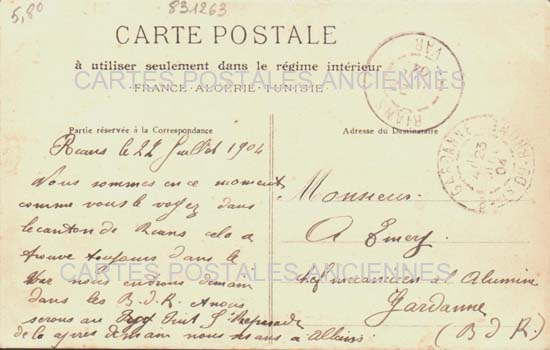 5,80
831263
CARTE POSTALE
à utiliser seulement dans le régime intérieur
CARTES POSTALES ANCIENNES
FRANCE - ALGÉRIE - TUNISIE
Partie réservée à la Correspondance
Rians le 22 Juillet 1904
Nous sommes en ce moment
comme vous le voyez dans
le canton de Rians cela se
trouve toujours dans le
Var nous entrons demain
dans les B-d-R. nous
serons au
de la après demain nous irons a
Adresse du Destinataire
Monsieur
A Emery
chef mécanicien a l'Alumine
Gardanne
(B d R)
CARTES POSTALES ANCIENNES
RIANS
VAR
GARDANNE
23
04
BCHES DU RHONE